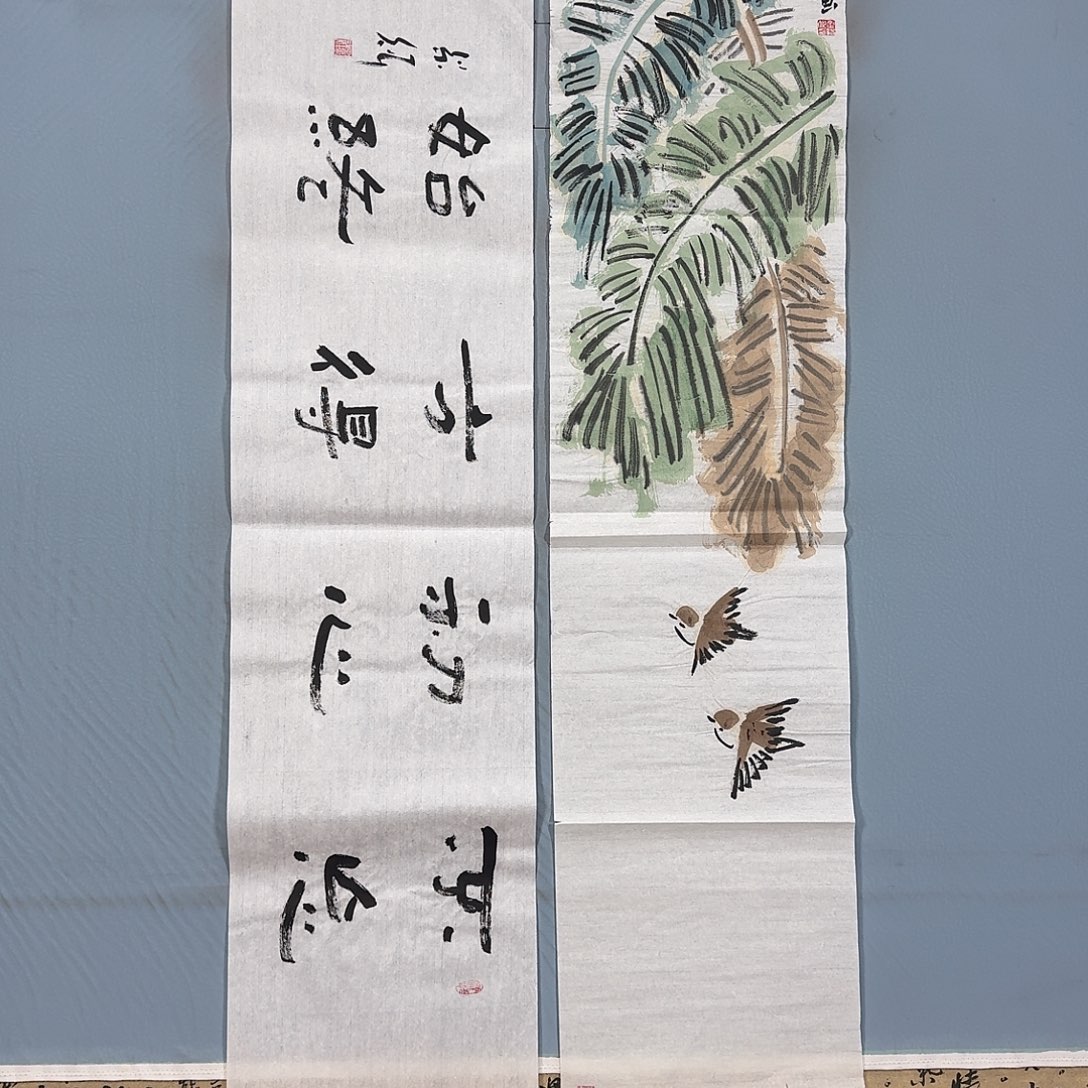 不忘
初心
方得
始終